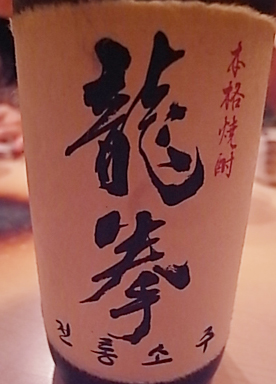 本格焼酎
龍拳
전통소주